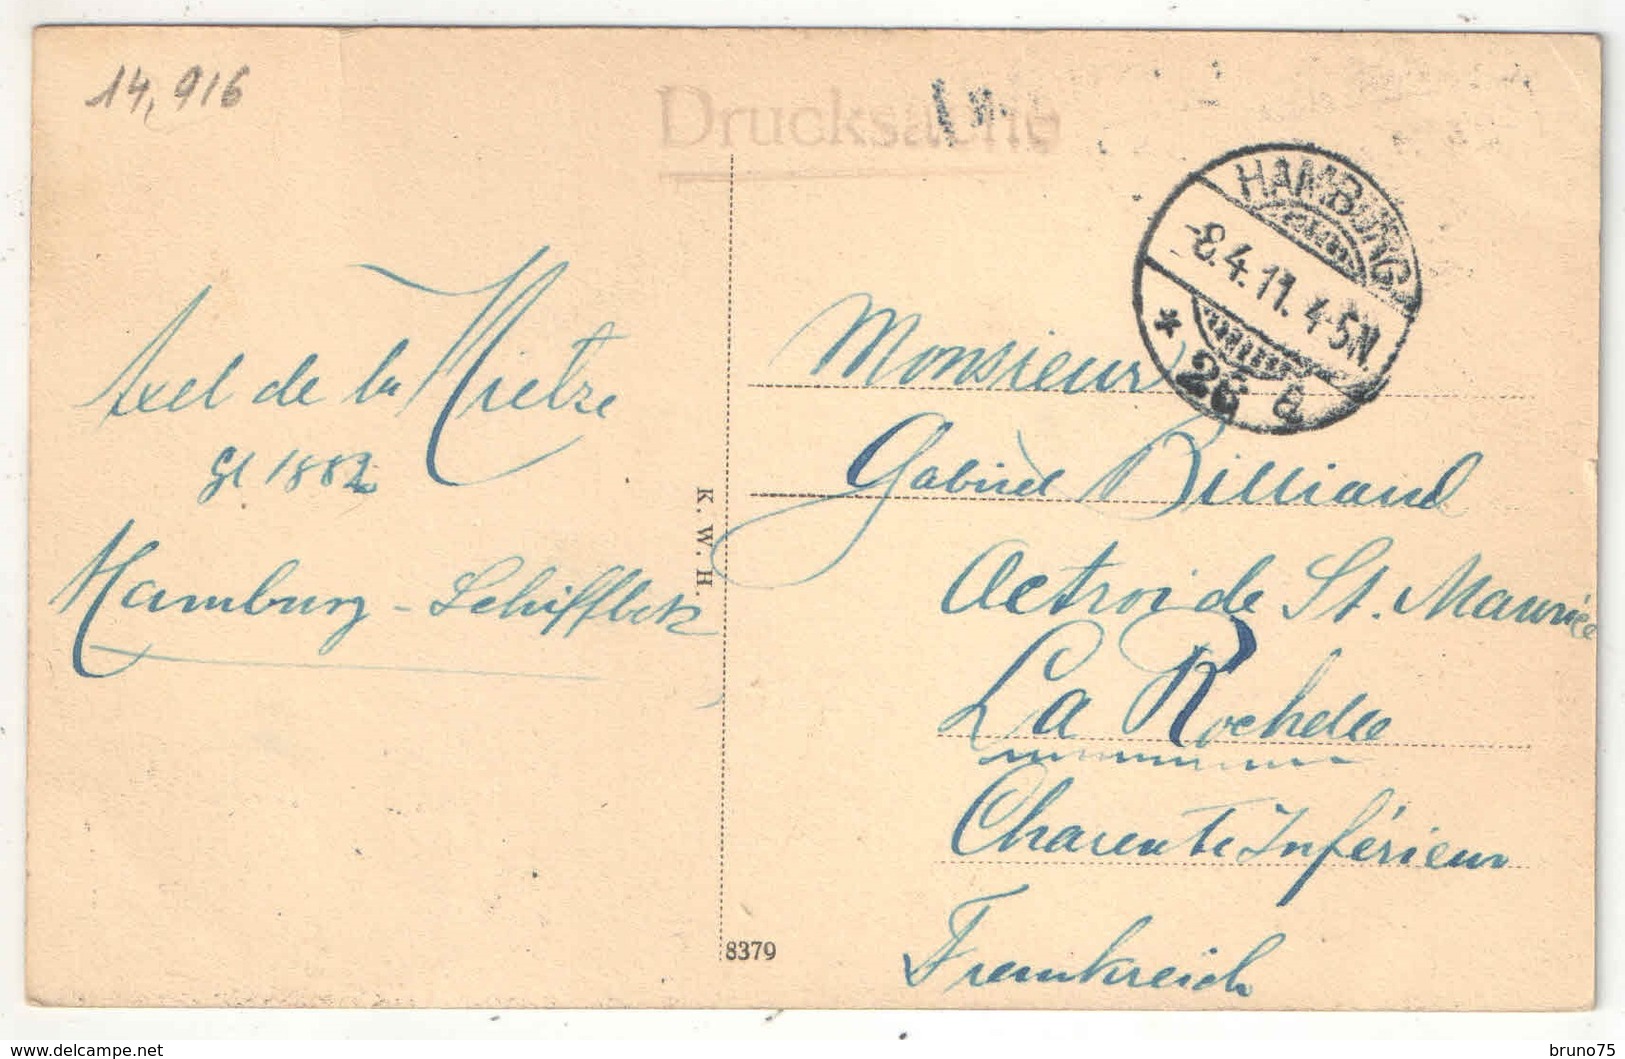 14,916
Drucksache
HAMBURG
-8.4.11. 4-5N.
* 26 a
Axel de la
gl 1882
Hamburg - Schiffbek
K. W. H.
8379
Monsieur
Gabriel Billiaud
Octroi de St. Maurice
La Rochelle
Charente Inférieur
Frankreich
delcampe.net
bruno75